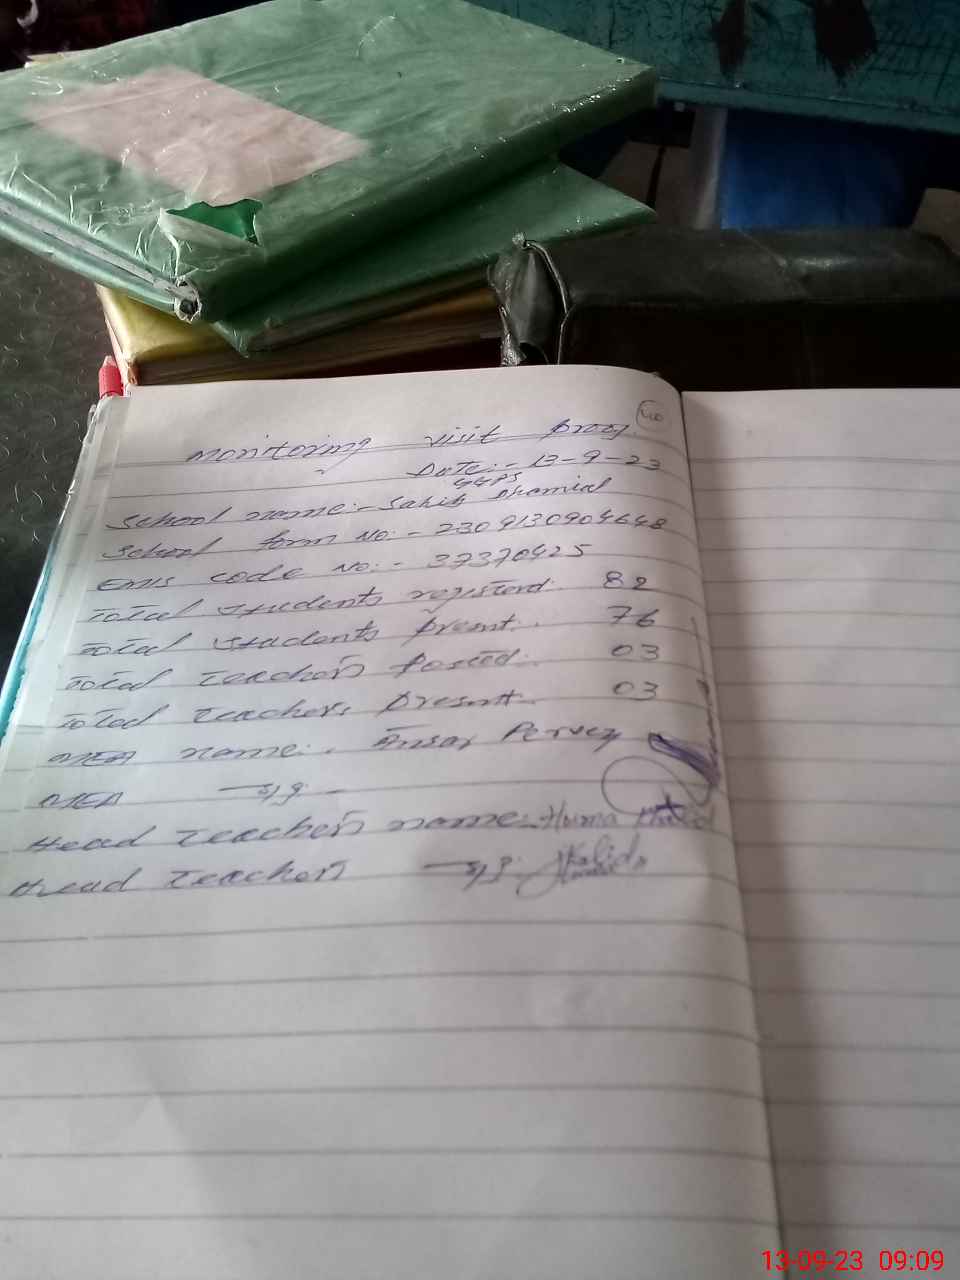 40
Monitoring visit proof.
Date:- 13-9-23
GGPS
School name:- Sahib Dhamial
School form No:- 2309130904648
EMIS code No:- 37370425
Total students registerd: 82
Total students present:. 76
Total teachers Posted:. 03
Total teachers present:- 03
MEA name:. Ansar Pervez
MEA Sig:-
Head teacher's name:- Huma
Head teacher's Sig:
13-09-23 09:09